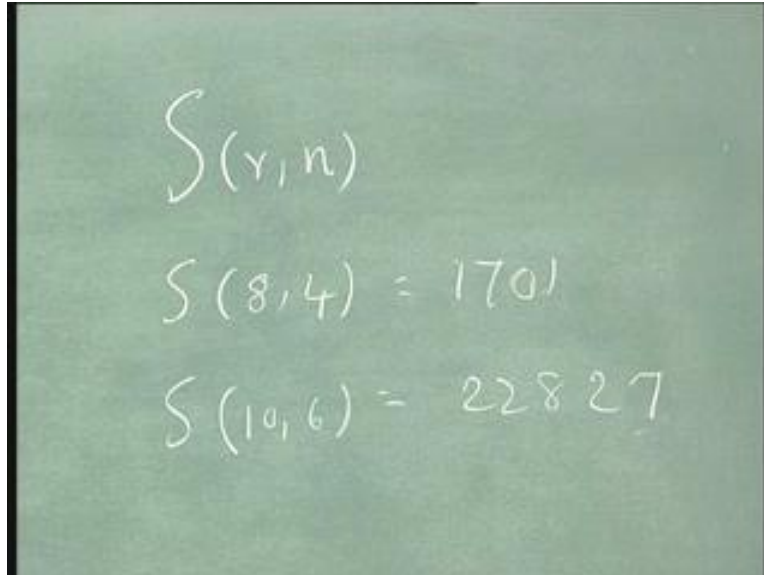 S(r,n)
S(8,4) = 1701
S(10,6) = 22827